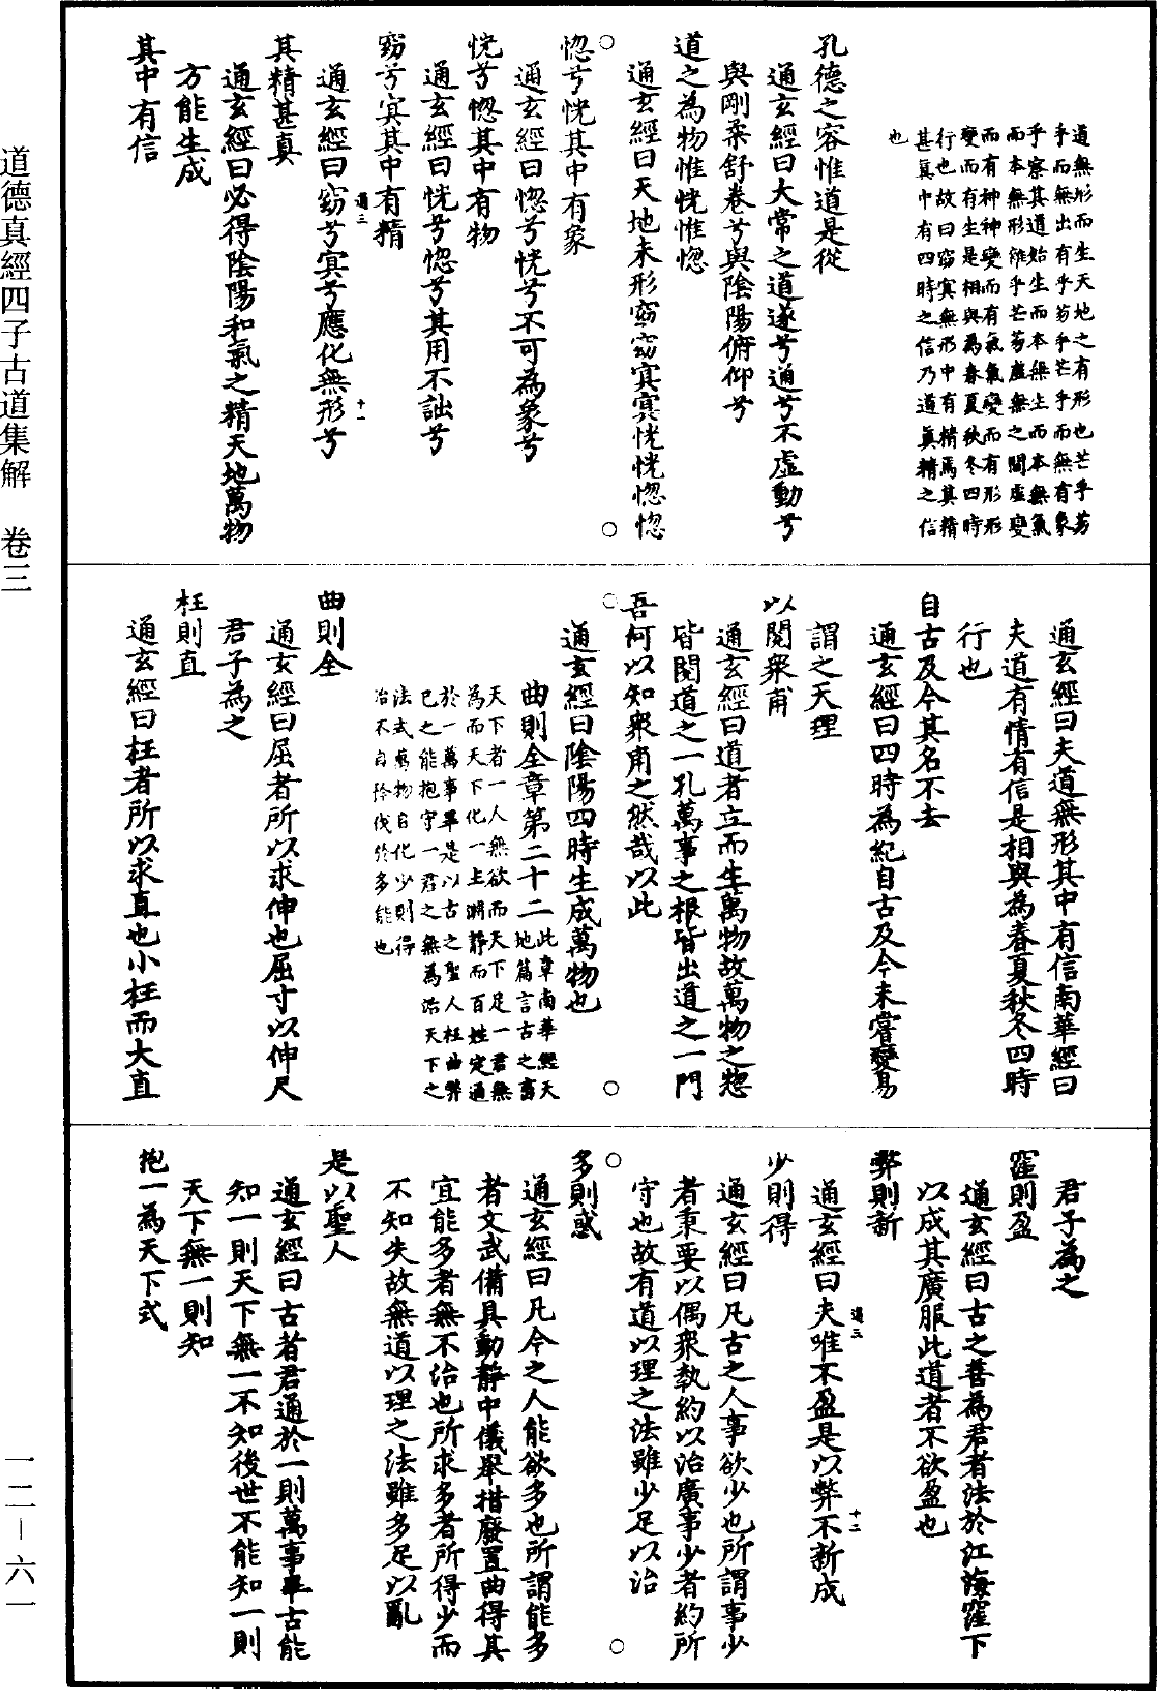 道德真經四子古道集解　卷三
一二—六一
道無形而生天地之有形也芒乎芴
乎而無出有乎芴乎芒乎而無有象
乎察其道始生而本無生而本無氣
而本無形雜乎芒芴虛無之間虛變
而有神神變而有氣氣變而有形形
變而有生是相與為春夏秋冬四時
行也故曰窈冥無形中有精焉其精
甚真中有四時之信乃道真精之信
也
孔德之容惟道是從
通玄經曰大常之道遂兮通兮不虛動兮
與剛柔舒卷兮與陰陽俯仰兮
道之為物惟恍惟惚
通玄經曰天地未形窈窈冥冥恍恍惚惚
惚兮恍其中有象
通玄經曰惚兮恍兮不可為象兮
恍兮惚其中有物
通玄經曰恍兮惚兮其用不詘兮
窈兮冥其中有精
道三　十一
通玄經曰窈兮冥兮應化無形兮
其精甚真
通玄經曰必得陰陽和氣之精天地萬物
方能生成
其中有信
通玄經曰夫道無形其中有信南華經曰
夫道有情有信是相與為春夏秋冬四時
行也
自古及今其名不去
通玄經曰四時為紀自古及今未嘗變易
謂之天理
以閱衆甫
通玄經曰道者立而生萬物故萬物之揔
皆閱道之一孔萬事之根皆出道之一門
吾何以知衆甫之然哉以此
通玄經曰陰陽四時生成萬物也
曲則全章第二十二此章南華經天地篇言古之畜
天下者一人無欲而天下足一君無
為而天下化一主淵靜而百姓定通
於一萬事畢是以古之聖人枉曲弊
已之能抱守一君之無為治天下之
法式萬物自化少則得
治不自矜伐於多能也
曲則全
通玄經曰屈者所以求伸也屈寸以伸尺
君子為之
枉則直
通玄經曰枉者所以求直也小枉而大直
君子為之
窪則盈
通玄經曰古之善為君者法於江海窪下
以成其廣服此道者不欲盈也
弊則新
道三　十二
通玄經曰夫唯不盈是以弊不新成
少則得
通玄經曰凡古之人事欲少也所謂事少
者秉要以偶衆執約以治廣事少者約所
守也故有道以理之法雖少足以治
多則惑
通玄經曰凡今之人能欲多也所謂能多
者文武備具動靜中儀舉措廢置曲得其
宜能多者無不治也所求多者所得少而
不知失故無道以理之法雖多足以亂
是以聖人
通玄經曰古者君通於一則萬事畢古能
知一則天下無一不知後世不能知一則
天下無一則知
抱一為天下式